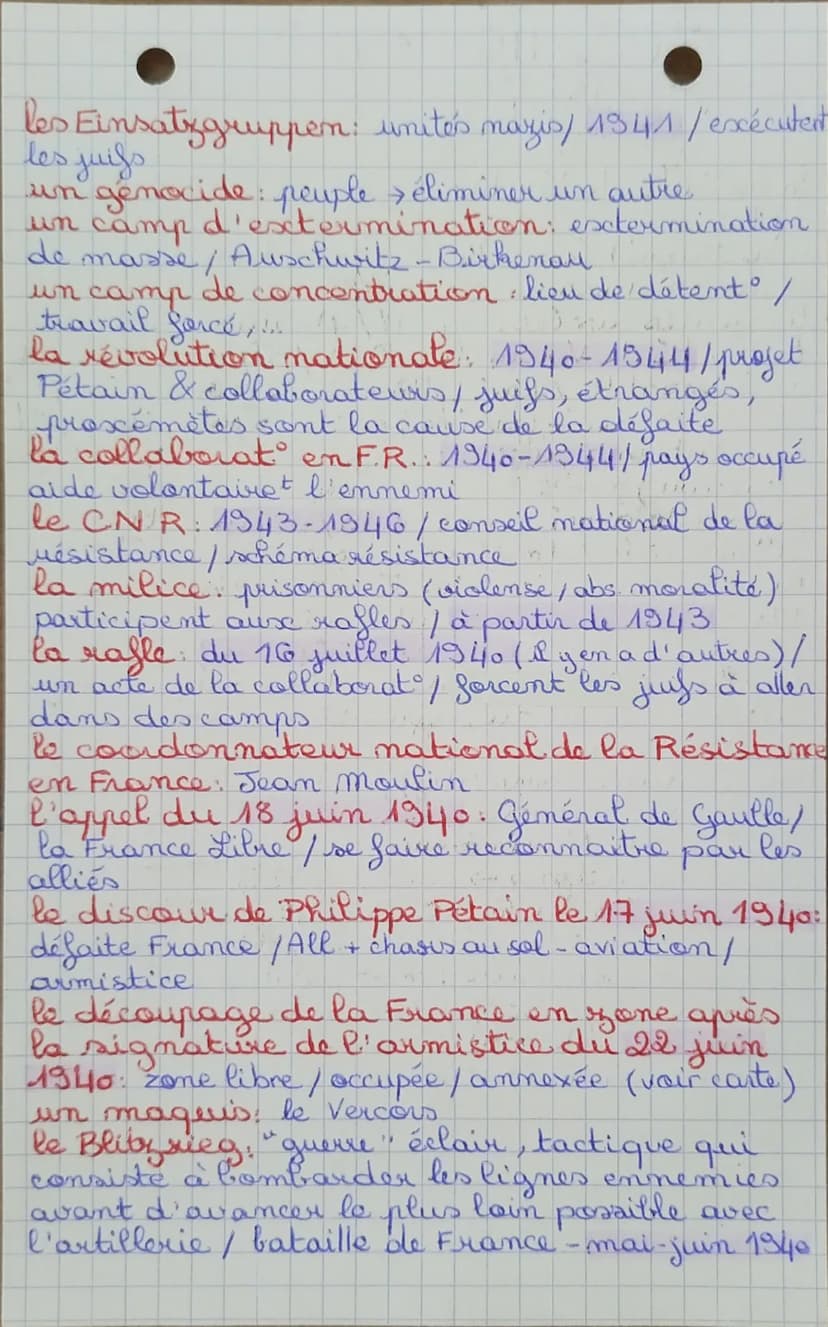 les Einsatzgruppen: unités nazis / 1941 / exécutent
les juifs
un génocide: peuple → éliminer un autre
un camp d'extermination: extermination
de masse / Auschwitz - Birkenau
un camp de concentration: lieu de détent° /
travail forcé, ...
la révolution nationale: 1940-1944 / projet
Pétain & collaborateurs / juifs, étrangés,
proxémètes sont la cause de la défaite
la collaborat° en F.R.: 1940-1944 / pays occupé
aide volontairet l'ennemi
le C.N.R: 1943-1946 / conseil national de la
résistance / schéma résistance
la milice: prisonniers (violense / abs. moralité)
participent aux rafles / à partir de 1943
la rafle: du 16 juillet 1940 (il y en a d'autres) /
un acte de la collaborat° / forcent les juifs à aller
dans des camps
le coordonnateur national de la Résistance
en France: Jean Moulin
l'appel du 18 juin 1940: Général de Gaulle /
la France Libre / se faire reconnaitre par les
alliés
le discour de Philippe Pétain le 17 juin 1940:
défaite France / All + chars au sol - aviation /
armistice
le découpage de la France en zone après
la signature de l'armistice du 22 juin
1940: zone libre / occupée / annexée (voir carte)
un maquis: le Vercors
le Blitzrieg: "guerre" éclair, tactique qui
consiste à bombarder les lignes ennemies
avant d'avancer le plus loin possible avec
l'artillerie / bataille de France - mai-juin 1940